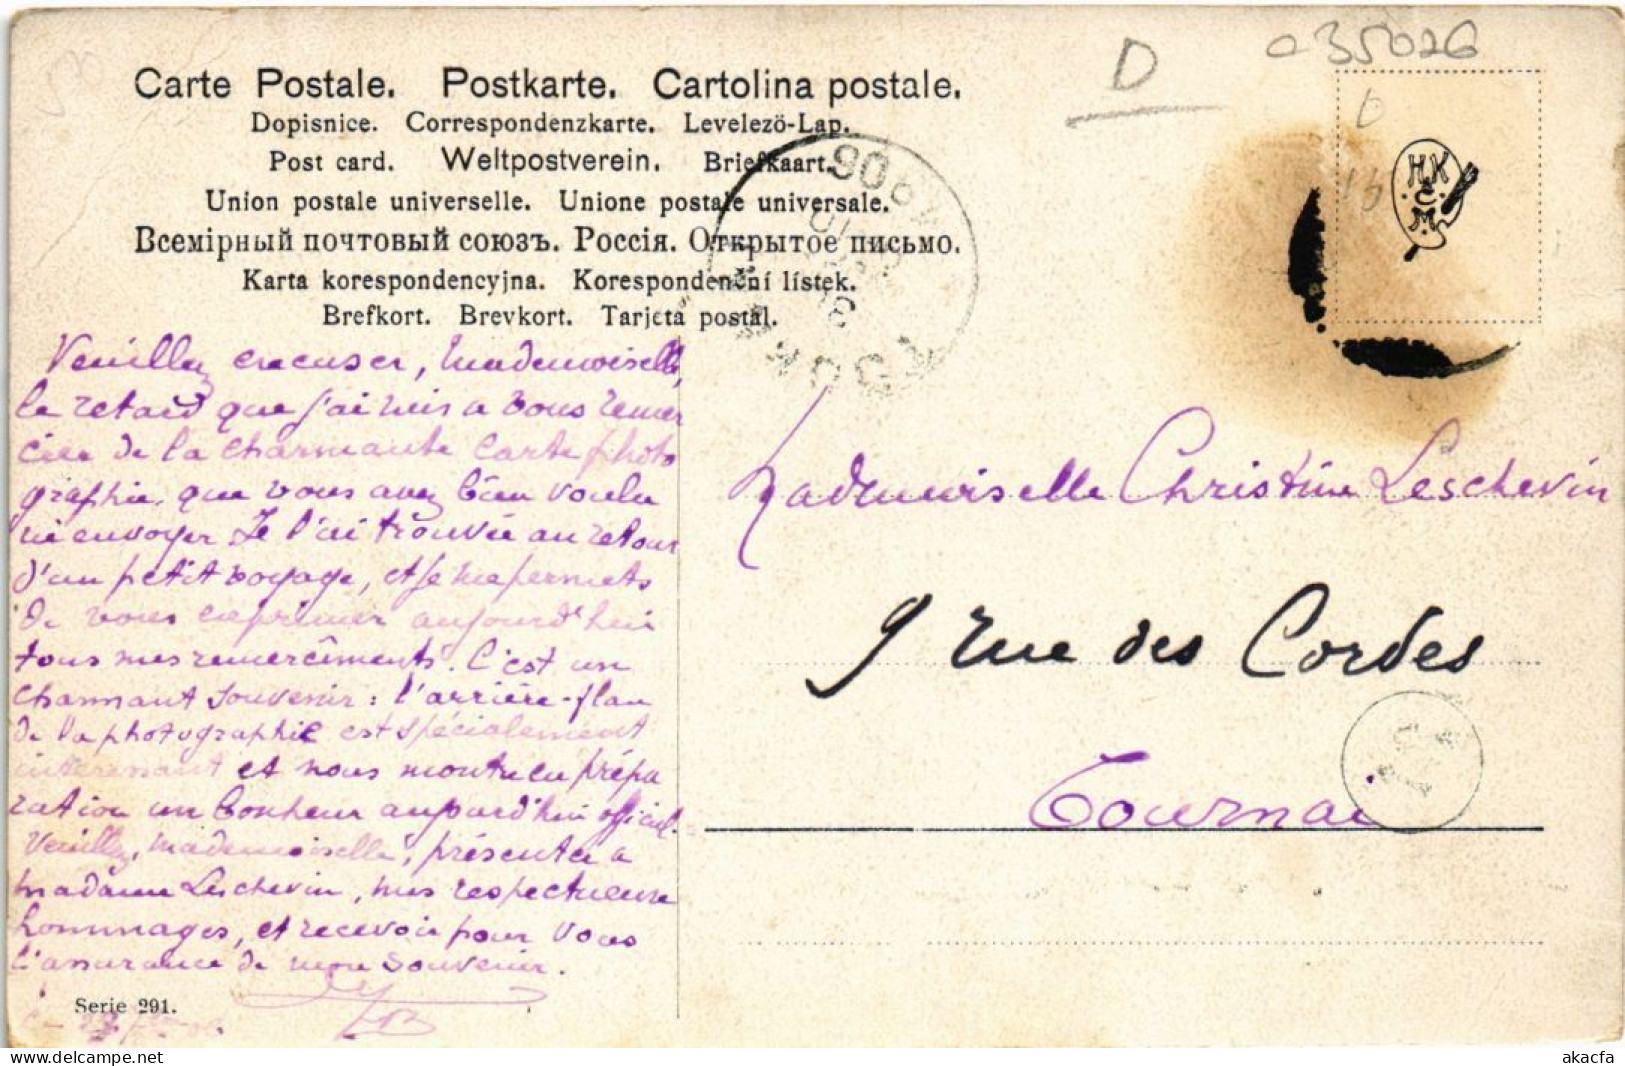 D
035026
Carte Postale. Postkarte. Cartolina postale.
Dopisnice. Correspondenzkarte. Levelezö-Lap.
Post card. Weltpostverein. Briefkaart.
Union postale universelle. Unione postale universale.
Всемірный почтовый союзъ. Россія. Открытое письмо.
Karta korespondencyjna. Korespondenční lístek.
Brefkort. Brevkort. Tarjeta postal.
H.K.
& C
M.
Veuillez excuser, Mademoiselle,
le retard que j'ai mis a vous remer
cier de la charmante carte photo
graphie, que vous avez bien voulu
m'envoyer. Je l'ai trouvée au retour
d'un petit voyage, et je me permets
de vous exprimer aujourd'hui
tous mes remercîments. C'est un
charmant souvenir : l'arrière-plan
de la photographie est spécialement
intéressant et nous montre en prépa
ration un bonheur aujourd'hui officiel.
Veuillez, Mademoiselle, présenter a
Madame Leschevin, mes respectueux
hommages, et recevoir pour vous
l'assurance de mon souvenir.
Serie 291.
Mademoiselle Christine Leschevin
9 rue des Cordes
Tournai
akacfa